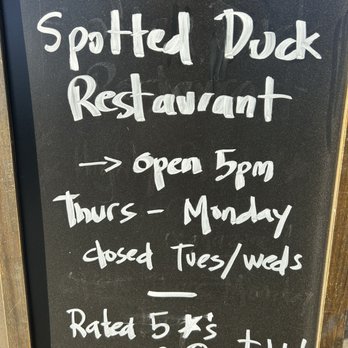 Spotted Duck
Restaurant
→ open 5pm
Thurs - Monday
closed Tues/weds
—
Rated 5 ★'s